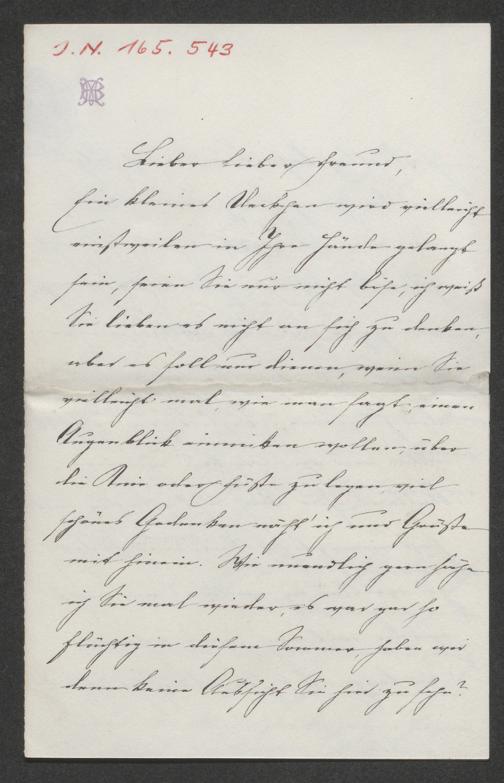 J.N. 165.543
Lieber lieber Freund,
Ein kleines Deckchen wird vielleicht
einstweilen in Ihre Hände gelangt
sein, seien Sie nur nicht böse, ich weiß
Sie lieben es nicht an sich zu denken,
aber es soll nur dienen, wenn Sie
vielleicht mal, wie man sagt, einen
Augenblick einnicken wollen, über
die Knie oder Füße zu legen, viel
schönes Gedenken näht' ich und Grüße
mit hinein. Wie unendlich gern sähe
ich Sie mal wieder, es war gar so
flüchtig in diesem Sommer, haben wir
denn keine Aussicht Sie hier zu sehn?